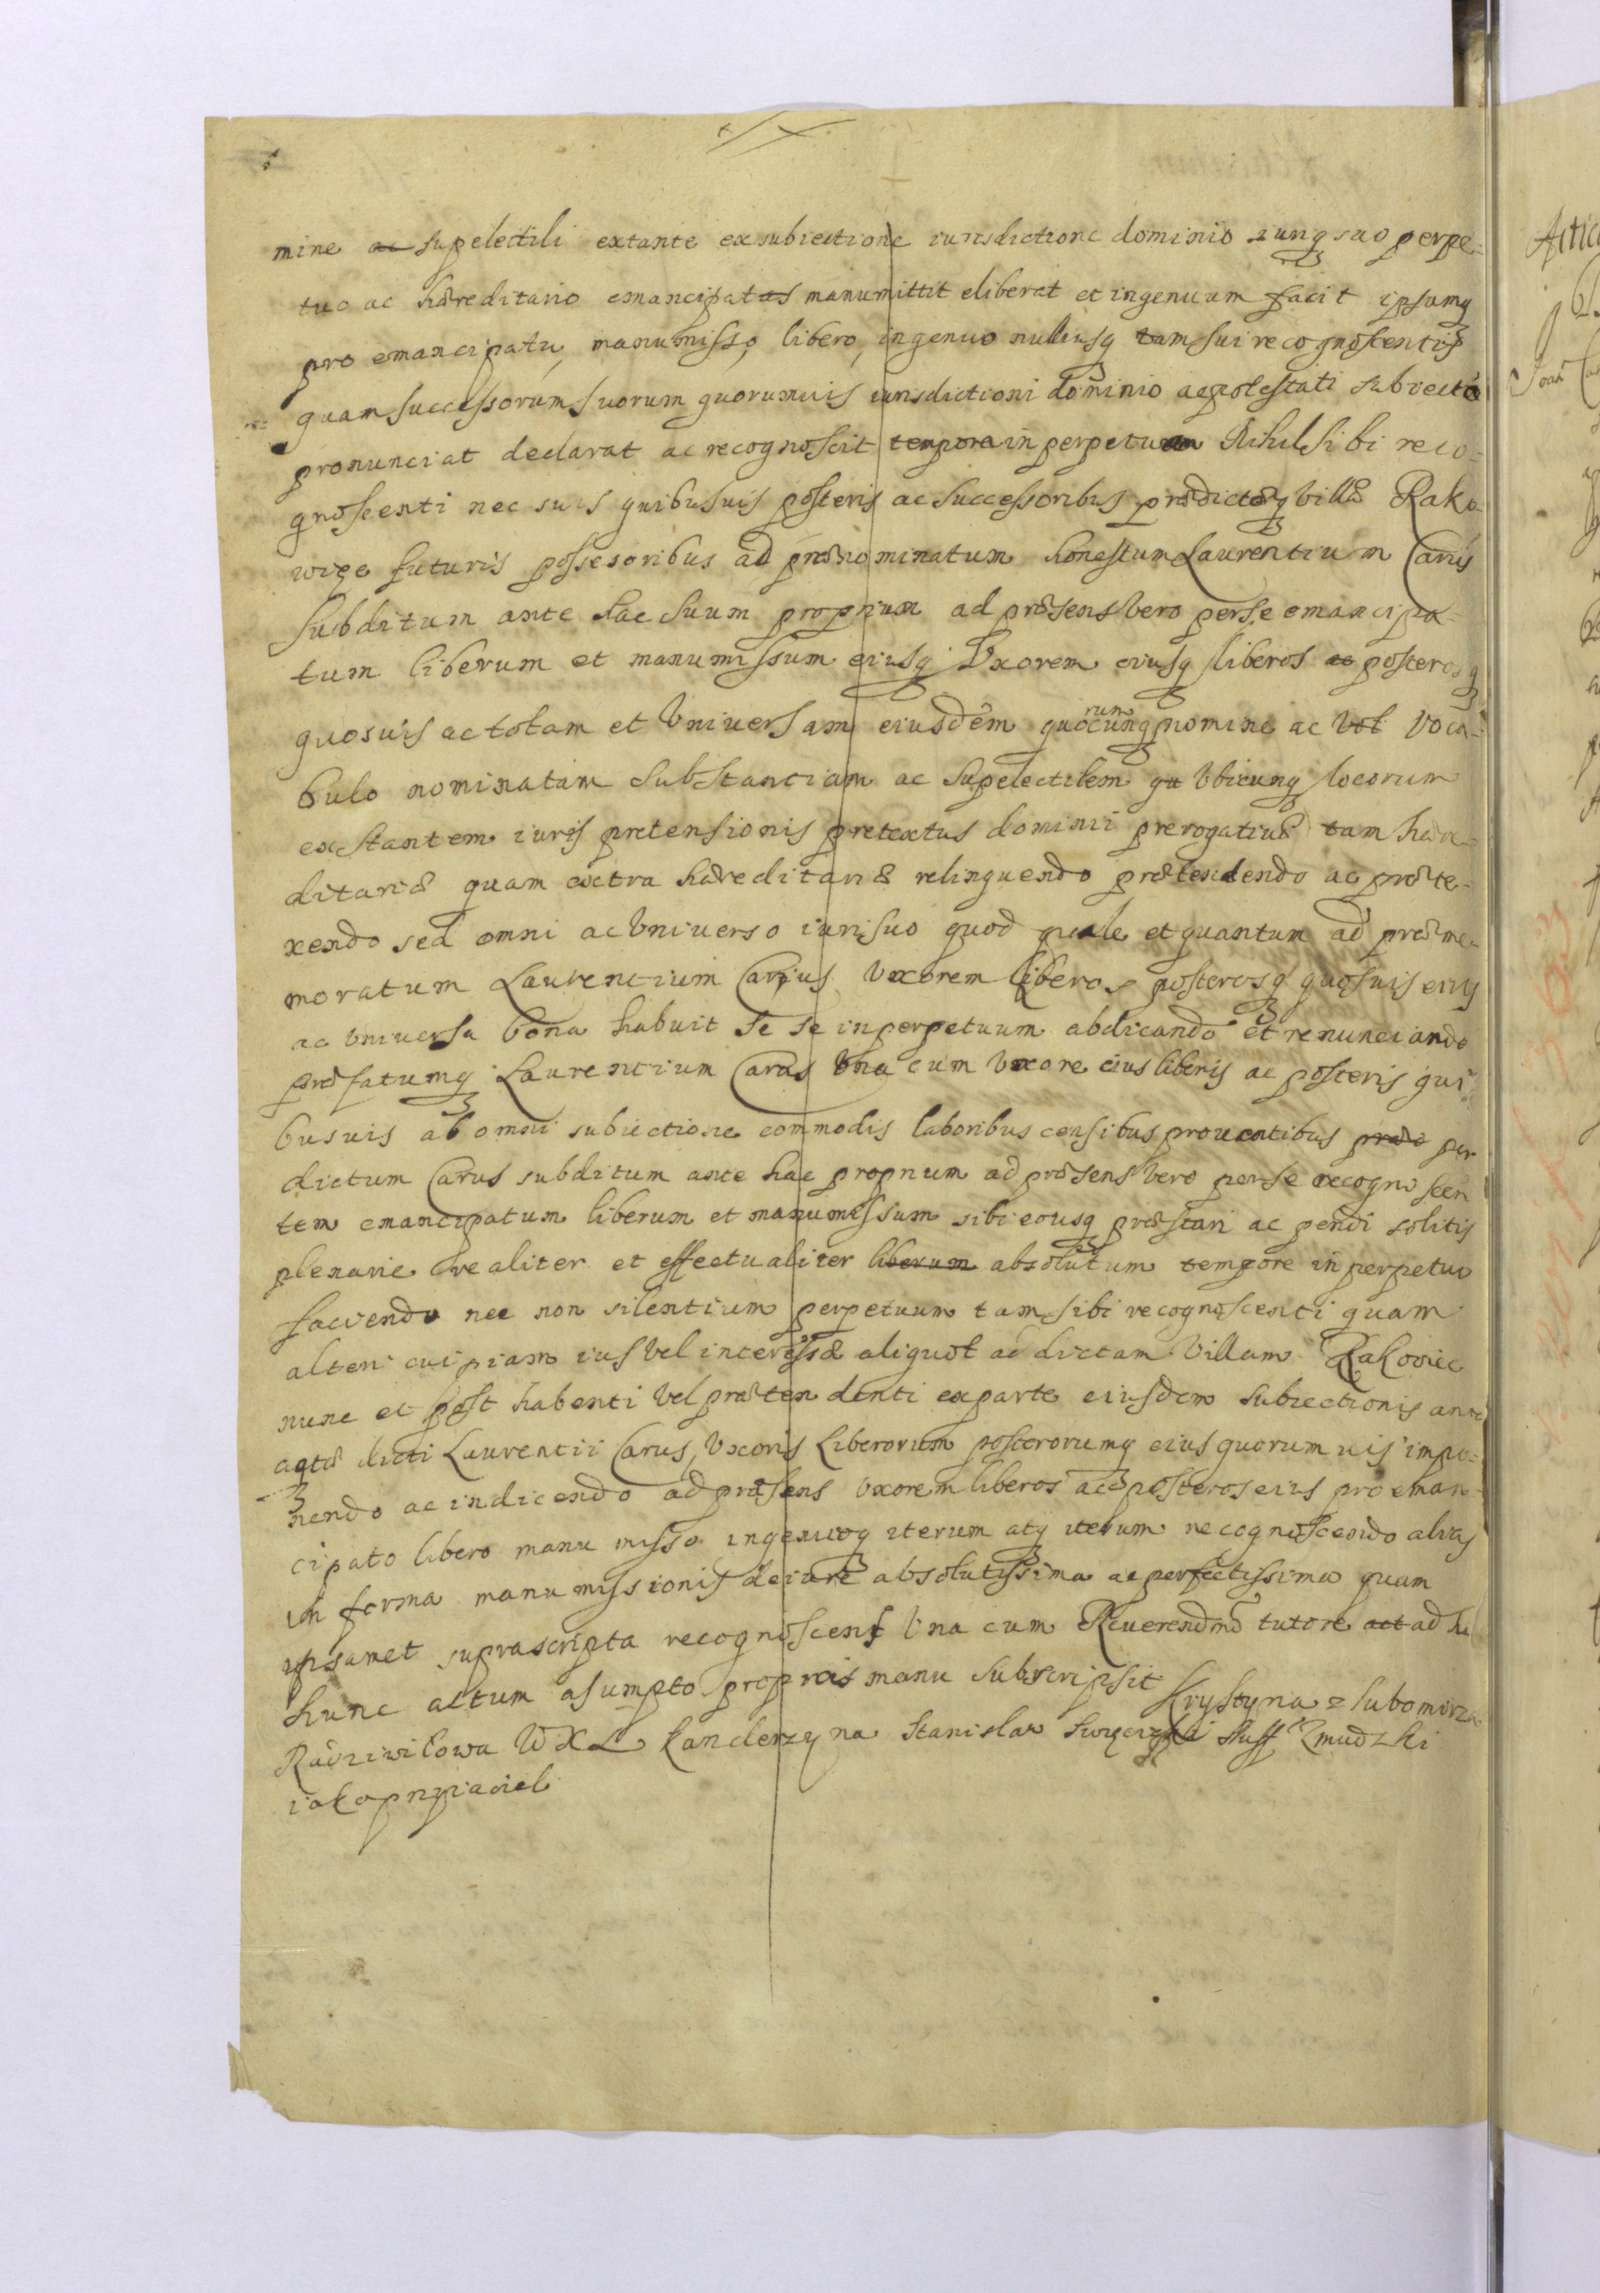 mine ac supelectili extante ex subiectione iurisdictione dominio iunq suo perpe-
tuo ac hæreditario emancipat as manumittit eliberat et ingenuum facit ipsumq
pro emancipatu, manumisso, libero, ingenuo nulliusq tam sui recognoscentis
quam successorum suorum quorumvis iurisdictioni dominio ac potestati subiecto
pronunciat declarat ac recognoscit tempora in perpetuum Nihil sibi reco-
gnoscenti nec suis quibusuis posteris ac successoribus prædictæq villæ Rako-
wiec futuris possesoribus ad prænominatum honestum Laurentium Carus
subditum ante hac suum proprium ad præsens vero per se emancipa-
tum liberum et manumissum eiusq Vxorem eiusq liberos ac posterosq
quosuis ac totam et Vniversam eiusdem quocunq rum nomine ac Vot Voca-
bulo nominatam substanciam ac supelectilem qu Vbicunq locorum
exstantem iuris pretensionis pretextus dominii prerogatiuæ tam hære-
ditariæ quam extra hæreditariæ relinquendo prætendendo ac præte-
xendo sed omni ac Vniverso iuri suo quod quale et quantum ad præme-
moratum Laurentium Carus Vxorem liberos posterosq quosuis eius
ac Vniversa bona habuit se se in perpetuum abdicando et renunciando
præfatumq Laurentium Carus Vna cum Vxore eius liberis ac posteris qui-
busuis ab omni subiectione commodis laboribus censibus prouentibus præ per
dictum Carus subditum ante hac proprium ad præsens Vero per se recognoscen
tem emancipatum liberum et manumissum sibi eousq præstari ac pendi solitis
plenarie realiter et effectualiter liberum absolutum tempore in perpetuo
faciendo nec non silentium perpetuum tam sibi recognoscenti quam
alteri cuipiam ius Vel interesse aliquot ad dictam Villam Rakowiec
nunc et post habenti Vel prætendenti ex parte eiusdem subiectionis ante
actæ dicti Laurentii Carus, Vxoris Liberorum posterorumq eius quorumuis impo-
nendo ac indicendo ad præsens Vxorem liberos ac posteros eius pro eman-
cipato libero manu misso ingenuoq iterum atq iterum recognoscendo alias
in forma manumissionis de iure absolutissima ac perfectissima quam
ipsamet suprascripta recognoscens Vna cum Reuerendmo tutore act ad hu
hunc actum asumpto propriis manu subscripsit Krystyna z Lubomirza
Radziwiłowa W X L Kanclerzyna Stanislaw Swięcizki Zmudzki
iako przyiaciel